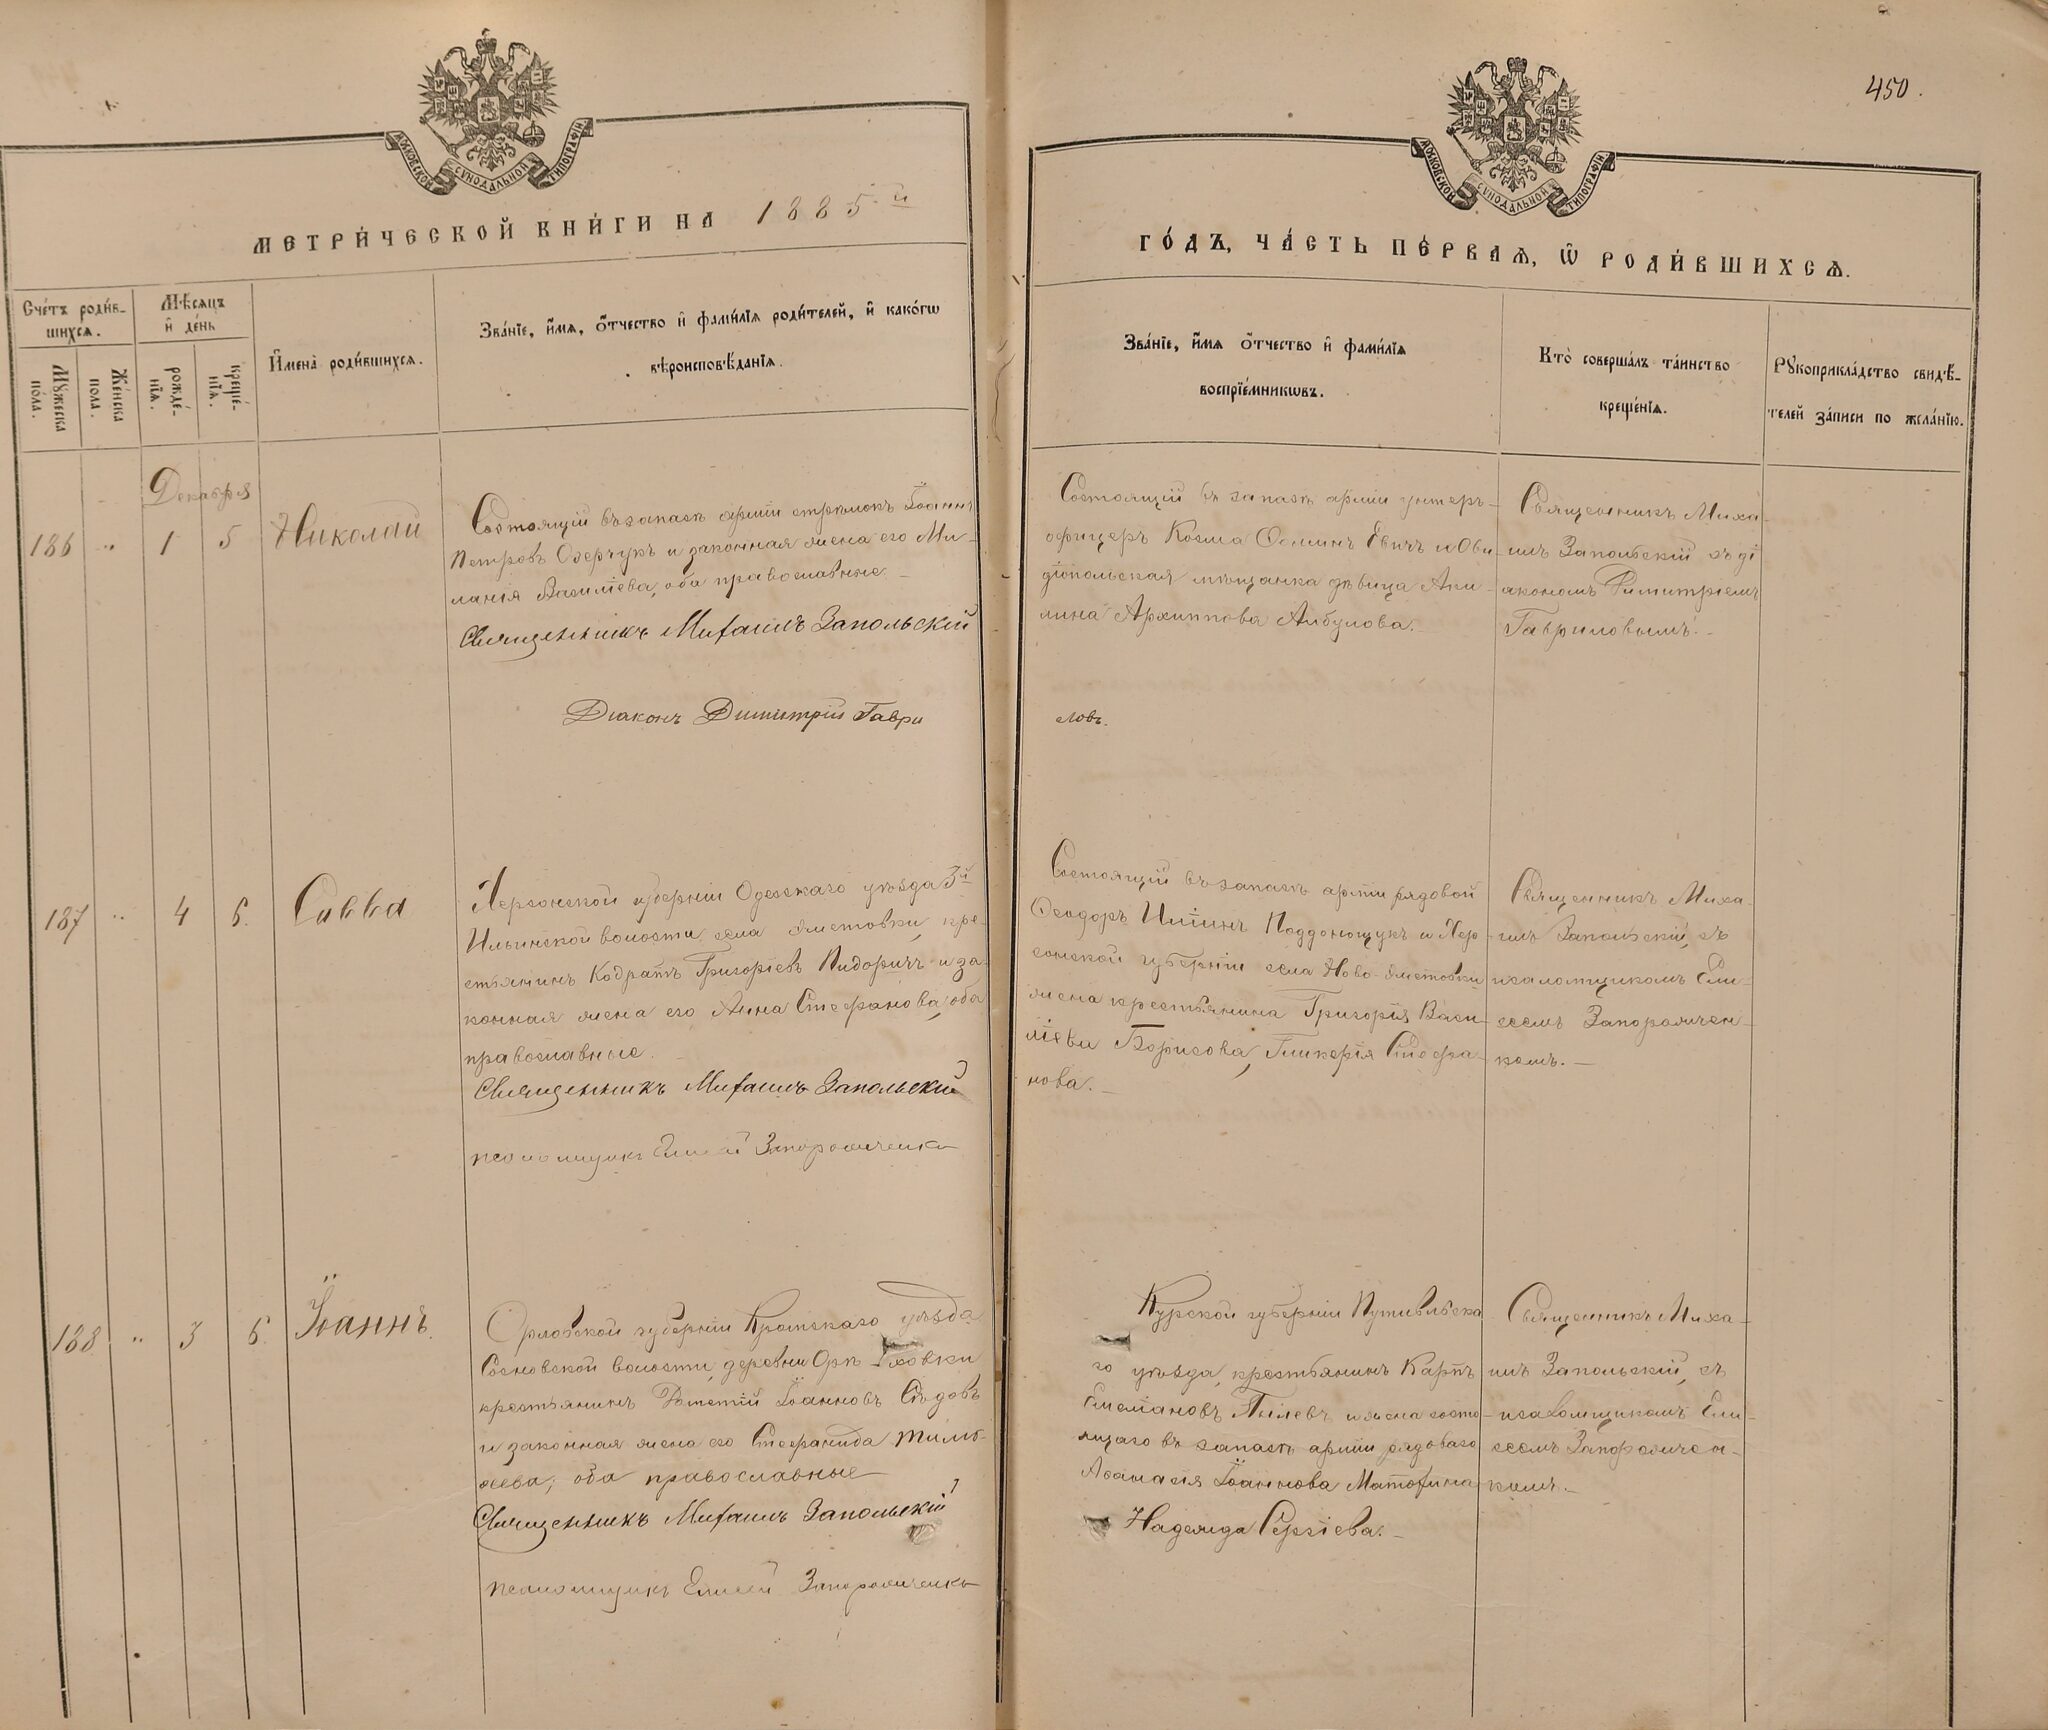 450.
МОСКОВСКОЙ СѴНОДАЛЬНОЙ ТИПОГРАФІИ
МОСКОВСКОЙ СѴНОДАЛЬНОЙ ТИПОГРАФІИ
МЕТРИ́ЧЕСКОЙ КНИ́ГИ НА 1885 й
ГО́ДЪ, ЧА́СТЬ ПЕ́РВАѦ, Ѡ҆ РОДИ́ВШИХСѦ.
Сче́тъ роди́в-
шихсѧ.
Мꙋ́жеска по́ла.
Же́нска пола.
Мѣ́сѧцъ
и҆ де́нь
рожде́-
нїѧ.
креще́-
нїѧ.
И҆мена̀ роди́вшихсѧ.
Зва́нїе, и҆́мѧ, ѻ҆́тчество и҆ фами́лїѧ роди́телей, и҆ како́гѡ
вѣроисповѣ́данїѧ.
Зва́нїе, и҆́мѧ ѻ҆́тчество и҆ фами́лїѧ
воспрїе́мникѡвъ.
Кто̀ соверша́лъ та́инство
креще́нїѧ.
Рꙋкоприкла́дство свидѣ́-
телей за́писи по жела́нїю.
Декабря
186 " 1 5 Николай
Состоящій въ запасѣ арміи стрѣлокъ Іоаннъ
Петровъ Озерчукъ и законная жена его Ми-
ланія Василіева, оба православные.
Священникъ Михаилъ Запольскій
Діаконъ Димитрій Гаври
ловъ.
Состоящій въ запасѣ арміи унтеръ-
офицеръ Козма Ѳоминъ Евичъ и Ови-
діопольская мѣщанка дѣвица Аки-
лина Архиппова Албулова.
Священникъ Миха-
илъ Запольскій съ ді
акономъ Димитріемъ
Гавриловымъ.
187 " 4 5. Савва
Херсонской губерніи Одесскаго уѣзда 3й
Ильинской волости, села Яметовки, кре-
стьянинъ Кодратъ Григоріевъ Кидоричъ и за-
конная жена его Анна Стефанова, оба
православные.
Священникъ Михаилъ Запольскій
псаломщикъ Елисей Запороженко
Состоящій въ запасѣ арміи рядовой
Ѳеодоръ Иліинъ Поддонощукъ и Хер-
сонской губерніи села Ново-Яметовки
жена крестьянина Григорія Васи-
ліева Борисова, Гликерія Стефа-
нова.
Священникъ Миха-
илъ Запольскій, съ
псаломщикомъ Ели-
сеемъ Запорожчен-
комъ.
188 " 3 5. Іоаннъ.
Орловской губерніи Кромскаго уѣзда
Сосновской волости, деревни
крестьянинъ Іоанновъ Сѣдовъ
и законная жена его Стефанида
оба православные
Священникъ Михаилъ Запольскій
псаломщикъ Елисей Запорожченко
Курской губерніи Путивльска
го уѣзда, крестьянинъ Карпъ
Емеліановъ и жена состо-
ящаго въ запасѣ арміи рядоваго
Аѳанасія Іоаннова Матохина
Надежда Сергіева.
Священникъ Миха-
илъ Запольскій, съ
псаломщикомъ Ели-
сеемъ Запорожчен-
комъ.